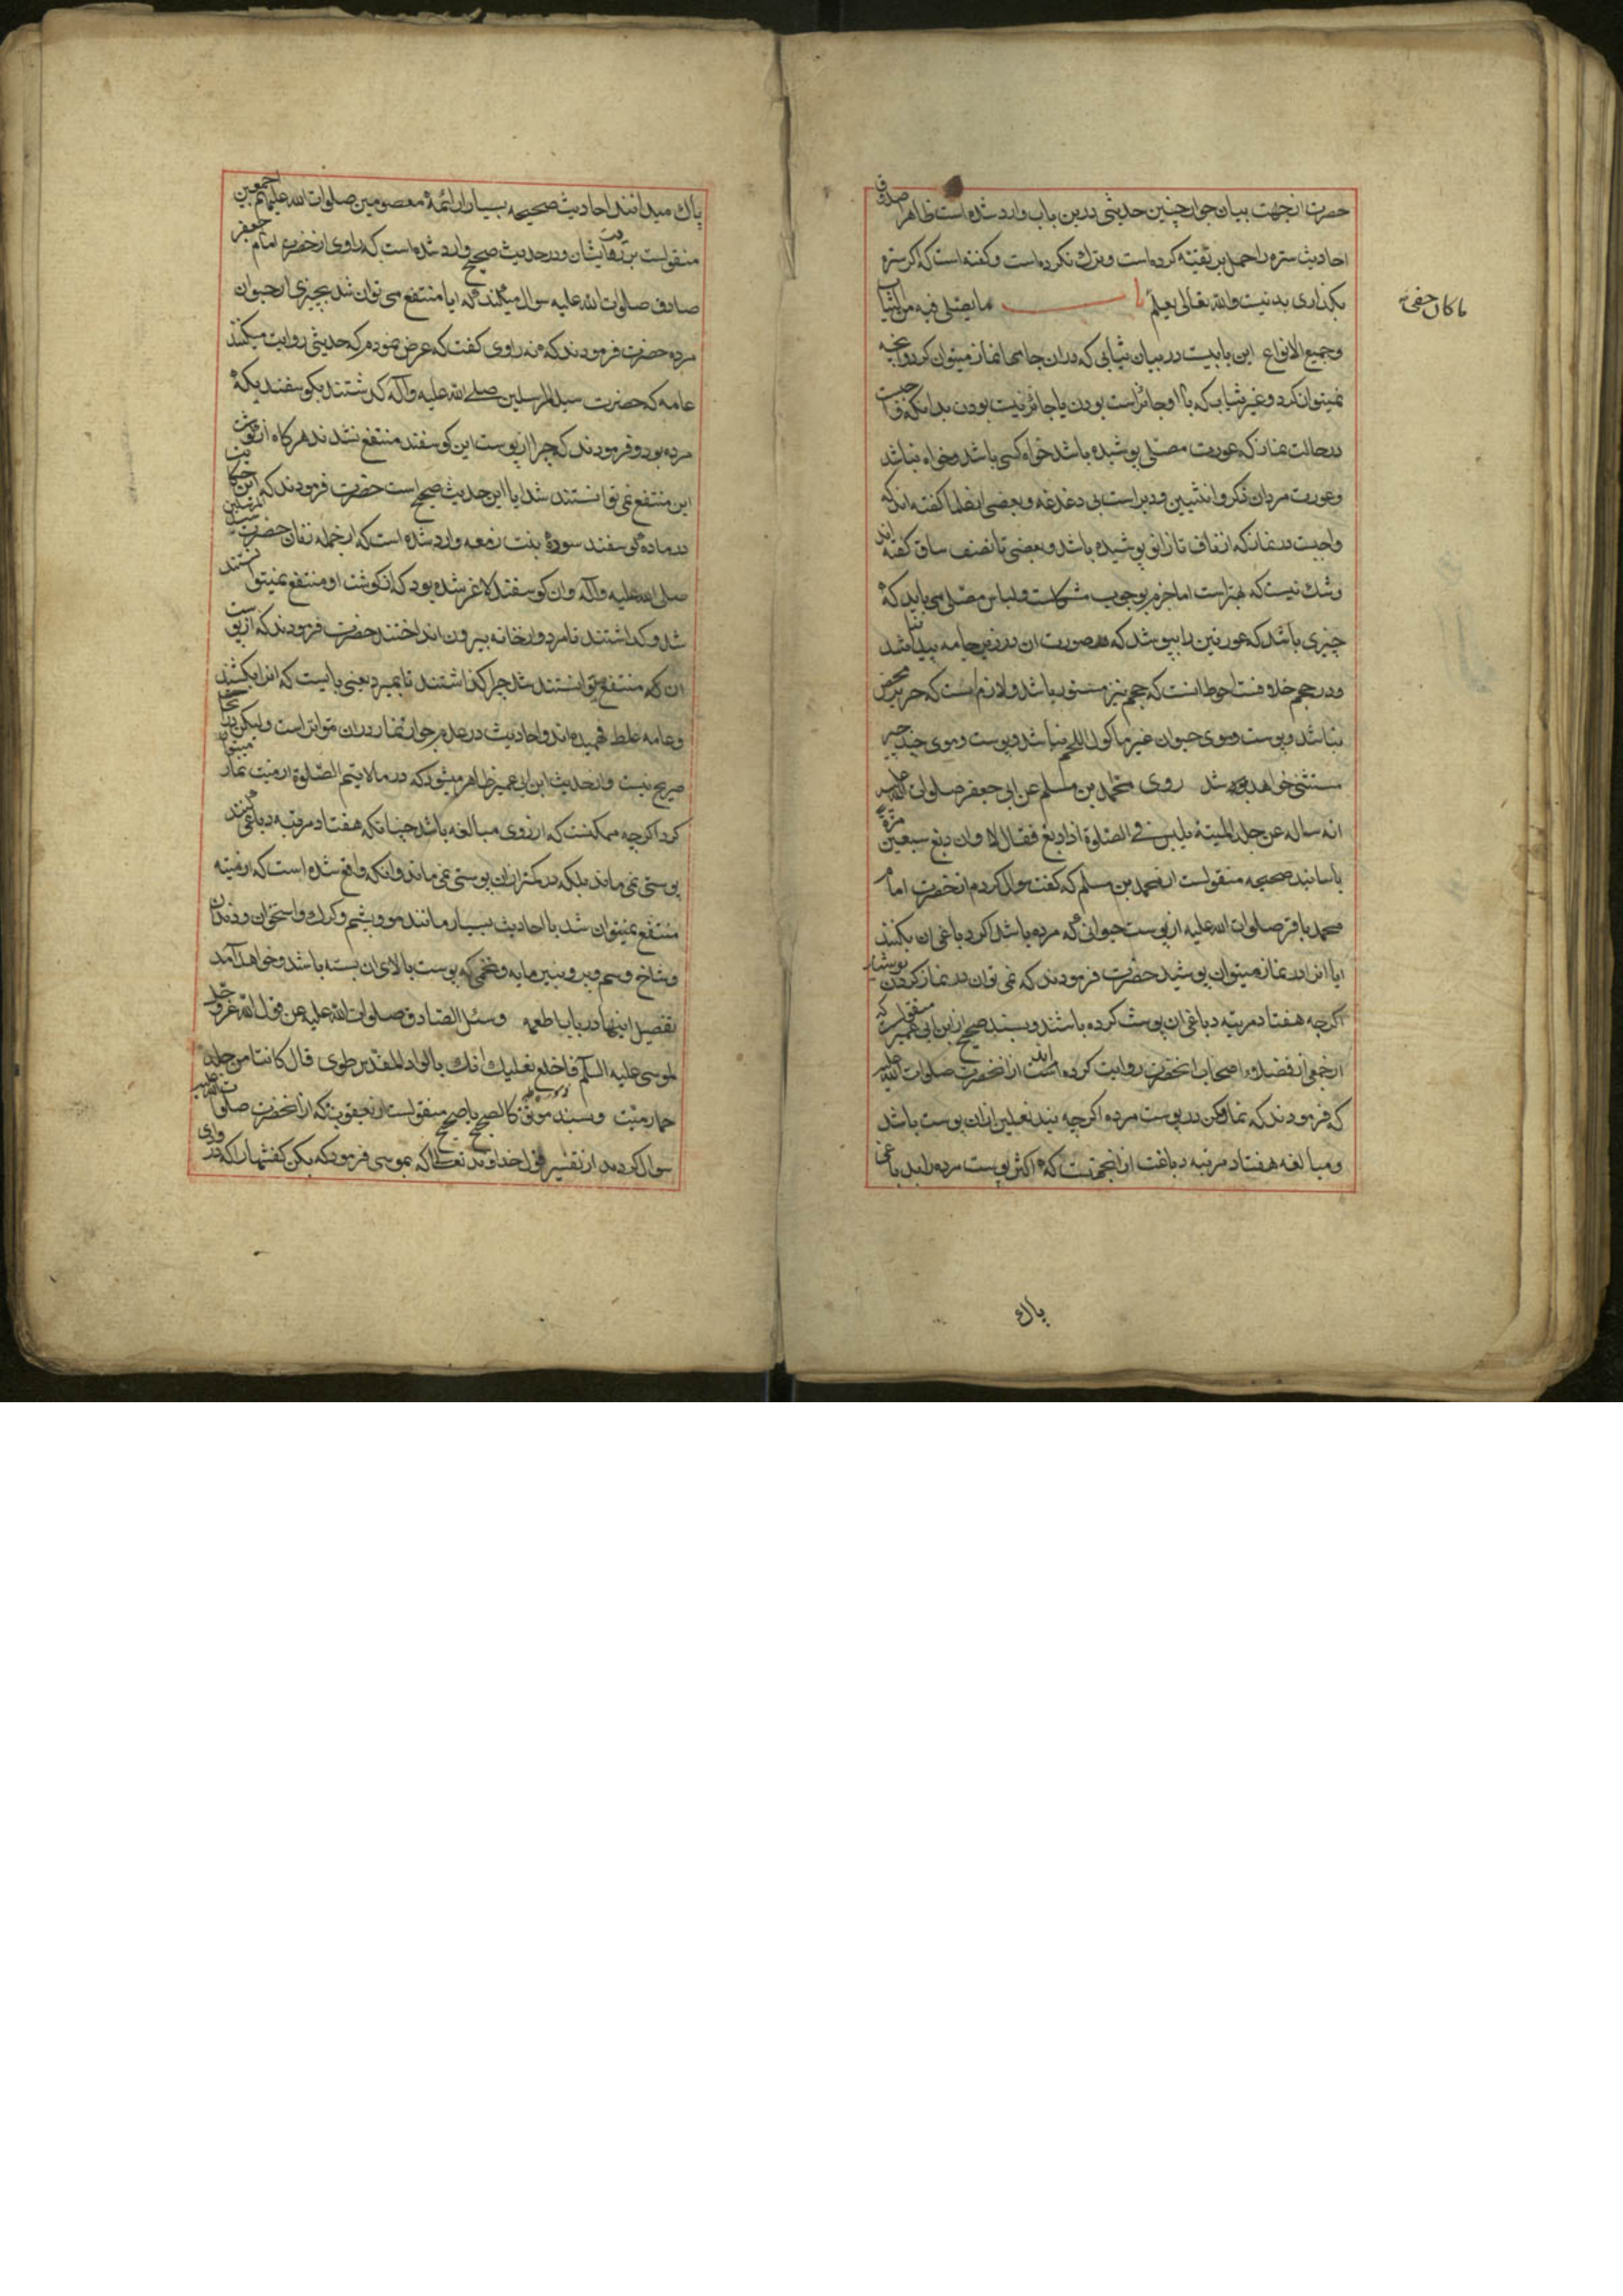 حضرت از جهت بیان جواز چنین حدیثی درین باب وارد شده است ظاهرا صدوق
احادیث ستره را حمل بر تقیه کرده است و ترك نکرده است و کفته است که اکر ستره
بکذاری بد نیست والله تعالی یعلم با ما یصلی فیه من الثیاب
وجمیع الانواع این بابیست در بیان ثیابی که در ان جامها نماز میتوان کرد وانچه
نمیتوان کرد وغیر ثیاب که با او جائز است بودن یا جائز نیست بودن بدانکه واجبست
در حالت نماز که عورت مصلی پوشیده باشد خواه کسی باشد وخواه نباشد
وعورت مردان ذکر وانثیین ودبر است بی دغدغه وبعضی از علما کفته اند که
واجبست در نماز که از ناف تا زانو پوشیده باشد وبعضی تا نصف ساق کفته اند
وشك نیست که بهتر است اما جزم بوجوب مشکلست ولباس مصلی می باید که
چیزی باشد که عورتین را بپوشد که هر صورت ان در زیر جامه پیدا نباشد
ودر حجم خلافست احوط انست که حجم نیز مستور باشد ولازم است که حریر محض
نباشد وپوست وموی حیوان غیر ماکول اللحم نباشد وپوست وموی چند چیز
مستثنی خواهد شد روی محمد بن مسلم عن ابی جعفر صلوات الله علیه
انه ساله عن جلد المیتة یلبس فی الصلوة اذا دبغ فقال لا وان دبغ سبعین مرة
باسانید صحیحه منقولست از محمد بن مسلم که کفت سوال کردم از حضرت امام
محمد باقر صلوات الله علیه از پوست حیوانی که مرده باشد اکر دباغی ان بکنند
ایا انرا در نماز میتوان پوشید حضرت فرمودند که نمی توان در نماز کردن
اکرچه هفتاد مرتبه دباغی ان پوست کرده باشند وبسند صحیح از ابن ابی عمیر منقولست که
از جمعی از فضلاء اصحاب انحضرت روایت کرده اند از انحضرت صلوات الله علیه
که فرمودند که نماز مکن در پوست مرده اکرچه بند نعلین از ان پوست باشد
ومبالغه هفتاد مرتبه دباغت از انجهتست که اکثر پوست مرده را بدباغی
ما کان خفی
پاك
پاك میدانند احادیث صحیحه بسیار از ائمه معصومین صلوات الله علیهم اجمعین
منقولست بر رد ایشان ودر حدیث صحیح وارد شده است که راوی از حضرت امام جعفر
صادق صلوات الله علیه سوال میکند که ایا منتفع می توان شد بچیزی از حیوان
مرده حضرت فرمودند که نه راوی کفت که عرض نمودم که حدیثی روایت میکنند
عامه که حضرت سید المرسلین صلی الله علیه وآله کذشتند بکوسفندیکه
مرده بود وفرمودند که چرا از پوست این کوسفند منتفع نشدند هرکاه از کوشت
این منتفع نمی توانستند شد ایا این حدیث صحیح است حضرت فرمودند که این حکایت
در ماده کوسفند سوده بنت زمعه وارد شده است که از جمله زنان حضرت سید المرسلین
صلی الله علیه وآله وان کوسفند لاغر شده بود که از کوشت او منتفع نمیتوانستند
شد وکذاشتند تا مرد واز خانه بیرون انداختند حضرت فرمودند که از پوست
ان که منتفع میتوانستند شد چرا کذاشتند تا بمیرد یعنی بایست که انرا بکشند
وعامه غلط فهمیده اند واحادیث در عدم جواز نماز در ان متواتر است ولیکن در
صریح نیست واز حدیث ابن ابی عمیر ظاهر میشود که در ما لا یتم الصلوة از میت نماز میتوان
کرد اکرچه ممکنست که از روی مبالغه باشد چنانکه هفتاد مرتبه دباغی کنند
پوستی نمی ماند بلکه در کمتر از ان پوستی نمی ماند وانکه واقع شده است که از میته
منتفع نمیتوان شد با احادیث بسیار مانند مو وپشم وکرك واستخوان ودندان
وشاخ وسم وپر وپنیر مایه وتخمی که پوست بالای ان بسته باشد وخواهد آمد
تفصیل اینها در باب اطعمه وسئل الصادق صلوات الله علیه عن قول الله عز وجل
لموسی علیه السلم فاخلع نعلیك انك بالواد المقدس طوی قال کانتا من جلد
حمار میت وبسند موثق کالصحیح یا صحیح منقولست از یعقوب که از انحضرت صلوات الله علیه
سوال کردند از تفسیر قول خداوند تعالی که بموسی فرمود که بکن کفشهارا که در وادی